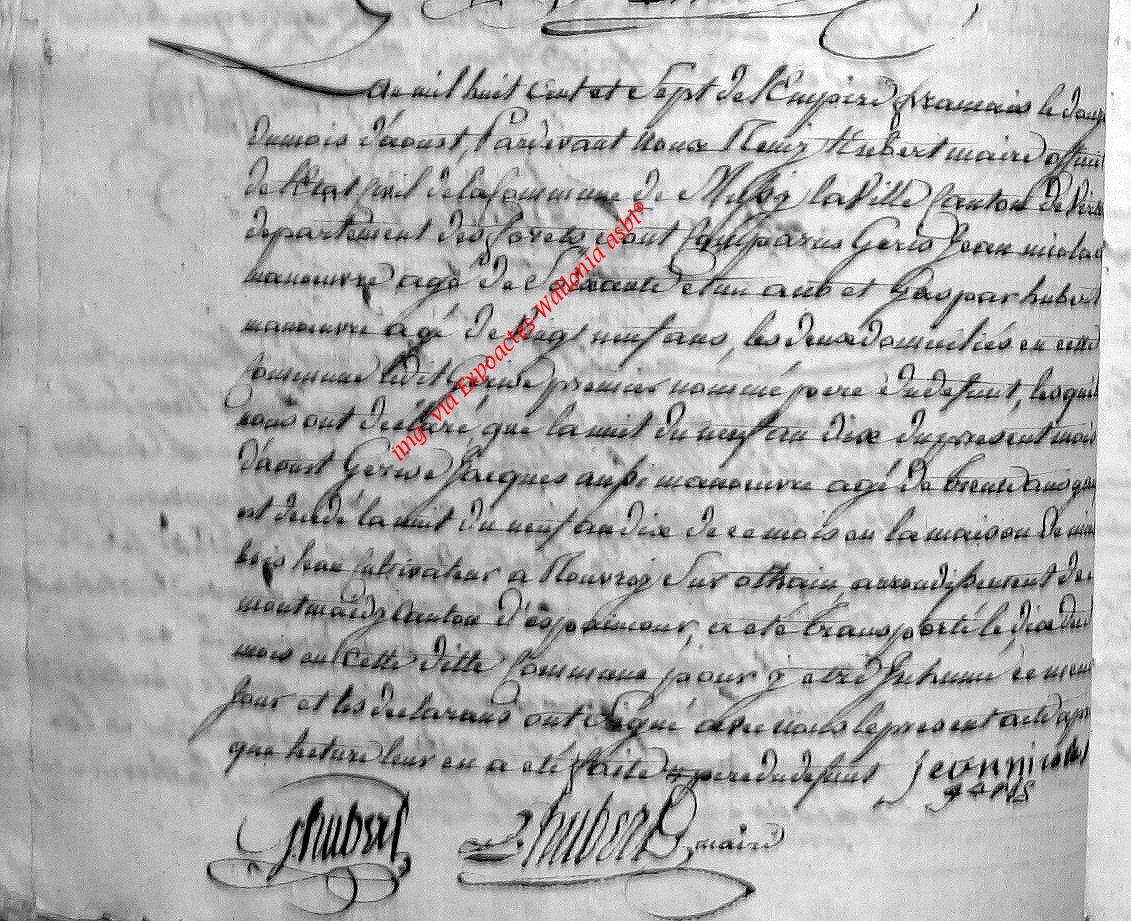 an mil huit Cent et Sept de l'Empire francais le douze
du mois d'aoust, Pardevant nous Remy Hubert maire officie
de l'Etat Civil de la Commune de la Ville Canton de Virto
departement des forets sont Comparus Geris Jean nicolas
manoeuvre agé de Soixante et un ans et Gaspar hubert
manoeuvre agé de vingt neuf ans, les deux domiciliés en cette
Commune ledit premier nommé pere du defunt, lesquels
nous ont déclaré que la nuit du neuf au dix du present mois
d'aoust Jacques aussi manoeuvre agé de trente ans
est décédé la nuit du neuf au dix de ce mois en la maison de
Cultivateur a Rouvroy Sur othain, arrondissement de
montmaidy Canton, a eté transporté le dix dud
mois en cette ditte Commune pour y etre Inhumé ce meme
Jour et les declarans ont Signé avec nous le present acte apre
que lecture leur en a eté faite pere du defunt jean nicolas
geris
G hubert hubert maire
img. via Expoactes Wallonia asbl®